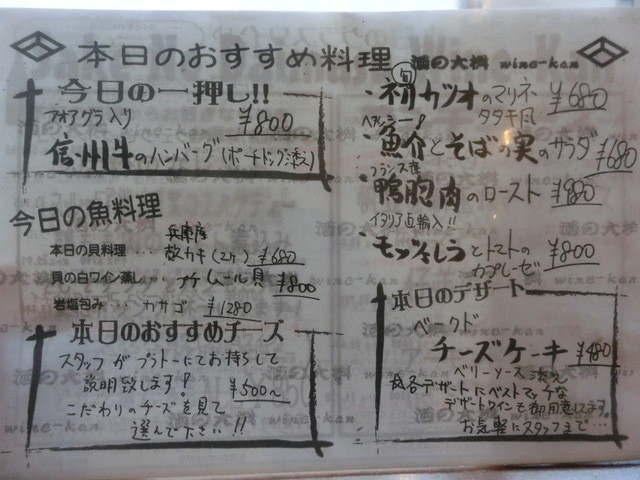 本日のおすすめ料理 酒の大桝 wine-kan
今日の一押し!!
フォアグラ入り
¥800
信州牛のハンバーグ(ポーチドエッグ添え)
今日の魚料理
兵庫産
本日の貝料理… 殻カキ(2ケ) ¥680
貝の白ワイン蒸し… ムール貝 ¥800
岩塩包み… カサゴ ¥1280
本日のおすすめチーズ
スタッフがプラトーにてお持ちして
説明致します! ¥500〜
こだわりのチーズを見て
選んで下さい!!
旬
・初カツオのマリネ ¥680
タタキ風
ヘルシー!
・魚介とそばの実のサラダ ¥680
フランス産
・鴨胸肉のロースト ¥980
イタリア直輸入!!
・モッツァレラとトマトの ¥800
カプレーゼ
本日のデザート
ベークド
チーズケーキ ¥480
ベリーソース添え
各デザートにベストマッチな
デザートワインも御用意してます。
お気軽にスタッフまで…